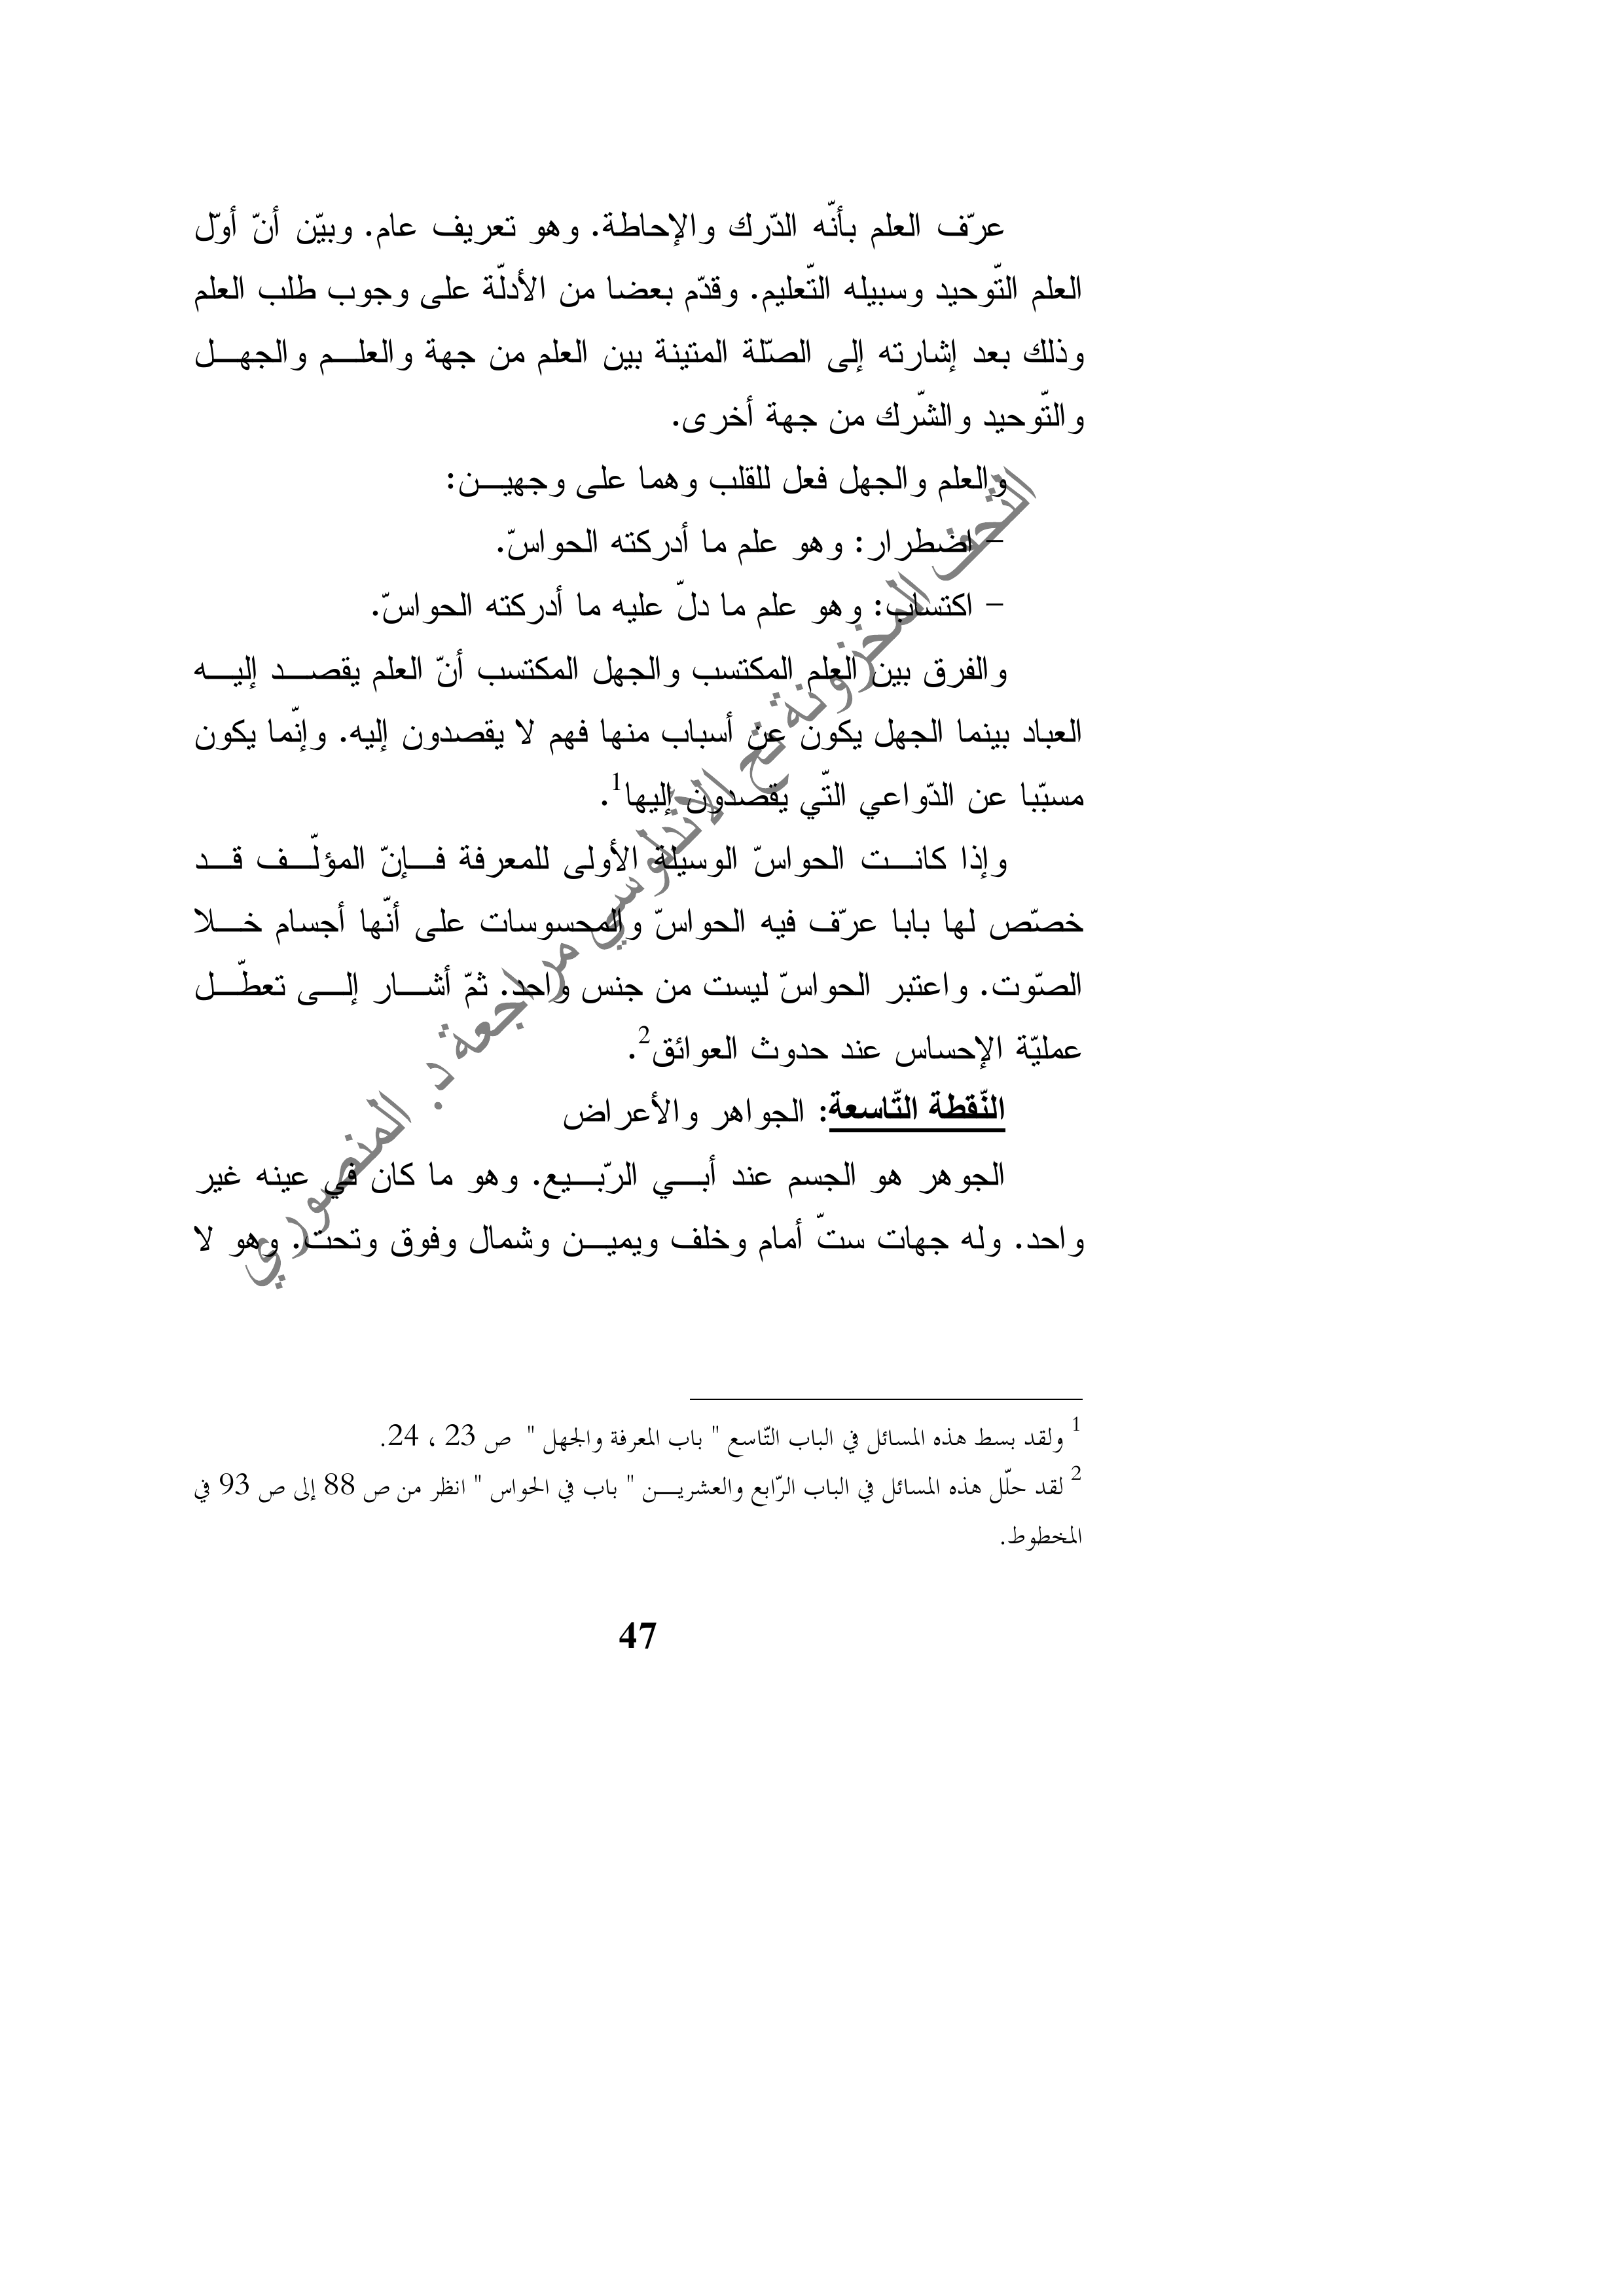 عرّف العلم بأنّه الدّرك والإحاطة. وهو تعريف عام. وبيّن أنّ أوّل
العلم التّوحيد وسبيله التّعليم. وقدّم بعضا من الأدلّة على وجوب طلب العلم
وذلك بعد إشارته إلى الصّلة المتينة بين العلم من جهة والعلـــم والجهـــل
والتّوحيد والشّرك من جهة أخرى.
والعلم والجهل فعل للقلب وهما على وجهيـــن:
– اضطرار: وهو علم ما أدركته الحواسّ.
– اكتساب: وهو علم ما دلّ عليه ما أدركته الحواسّ.
والفرق بين العلم المكتسب والجهل المكتسب أنّ العلم يقصـــد إليـــه
العباد بينما الجهل يكون عن أسباب منها فهم لا يقصدون إليه. وإنّما يكون
مسبّبا عن الدّواعي التّي يقصدون إليها1.
وإذا كانـــت الحواسّ الوسيلة الأولى للمعرفة فـــإنّ المؤلّـــف قـــد
خصّص لها بابا عرّف فيه الحواسّ والمحسوسات على أنّها أجسام خـــلا
الصّوت. واعتبر الحواسّ ليست من جنس واحد. ثمّ أشـــار إلـــى تعطّـــل
عمليّة الإحساس عند حدوث العوائق2.
النّقطة التّاسعة: الجواهر والأعراض
الجوهر هو الجسم عند أبـــي الرّبـــيع. وهو ما كان في عينه غير
واحد. وله جهات ستّ أمام وخلف ويميـــن وشمال وفوق وتحت. وهو لا
1 ولقد بسط هذه المسائل في الباب التّاسع " باب المعرفة والجهل " ص 23 ، 24.
2 لقد حلّل هذه المسائل في الباب الرّابع والعشريـــن " باب في الحواس " انظر من ص 88 إلى ص 93 في
المخطوط.
47
التحف المخزونة تح الأندلوسي مراجعة د. المنصوري